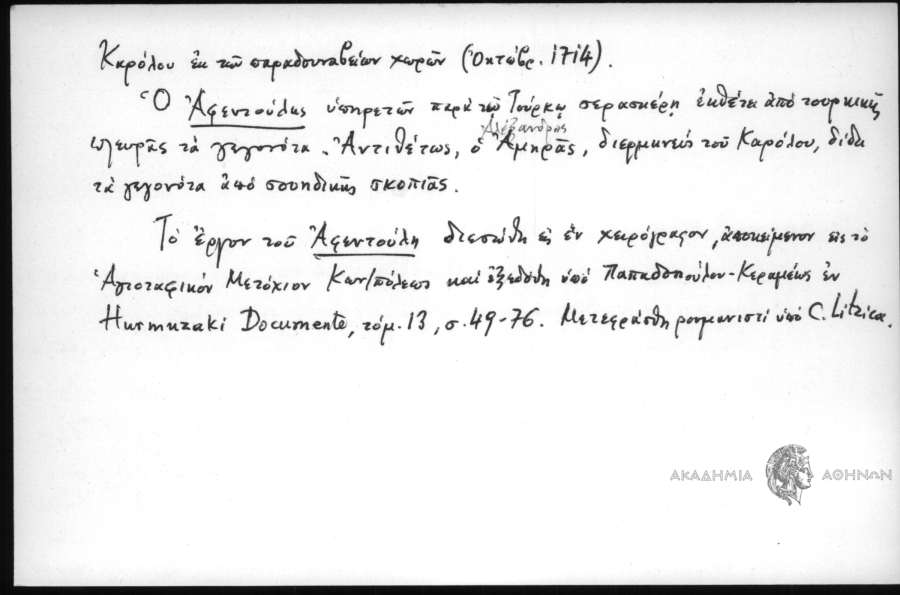 Καρόλου ἐκ τῶν παραδουναβείων χωρῶν (Ὀκτώβρ. 1714).
Ὁ Ἀφεντούλης ὑπηρετῶν παρὰ τῷ Τούρκῳ σερασκέρῃ ἐκθέτει ἀπὸ τουρκικῆς
Ἀλέξανδρος
πλευρᾶς τὰ γεγονότα. Ἀντιθέτως, ὁ Ἀμηρᾶς, διερμηνεὺς τοῦ Καρόλου, δίδει
τὰ γεγονότα ἀπὸ σουηδικῆς σκοπιᾶς.
Τὸ ἔργον τοῦ Ἀφεντούλη διεσώθη εἰς ἓν χειρόγραφον, ἀποκείμενον εἰς τὸ
Ἁγιοταφικὸν Μετόχιον Κων/πόλεως καὶ ἐξεδόθη ὑπὸ Παπαδοπούλου-Κεραμέως ἐν
Hurmuzaki Documente, τόμ. 13, σ. 49-76. Μετεφράσθη ρουμανιστὶ ὑπὸ C. Litzica.
ΑΚΑΔΗΜΙΑ ΑΘΗΝΩΝ